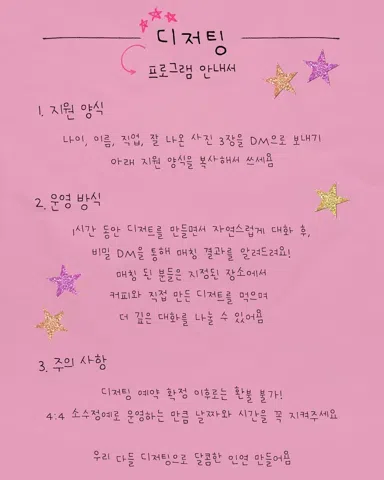 디저팅
프로그램 안내서
1. 지원 양식
나이, 이름, 직업, 잘 나온 사진 3장을 DM으로 보내기
아래 지원 양식을 복사해서 쓰세욤
2. 운영 방식
1시간 동안 디저트를 만들면서 자연스럽게 대화 후,
비밀 DM을 통해 매칭 결과를 알려드려요!
매칭 된 분들은 지정된 장소에서
커피와 직접 만든 디저트를 먹으며
더 깊은 대화를 나눌 수 있어욤
3. 주의 사항
디저팅 예약 확정 이후로는 환불 불가!
4:4 소수정예로 운영하는 만큼 날짜와 시간을 꼭 지켜주세요
우리 다들 디저팅으로 달콤한 인연 만들어욤